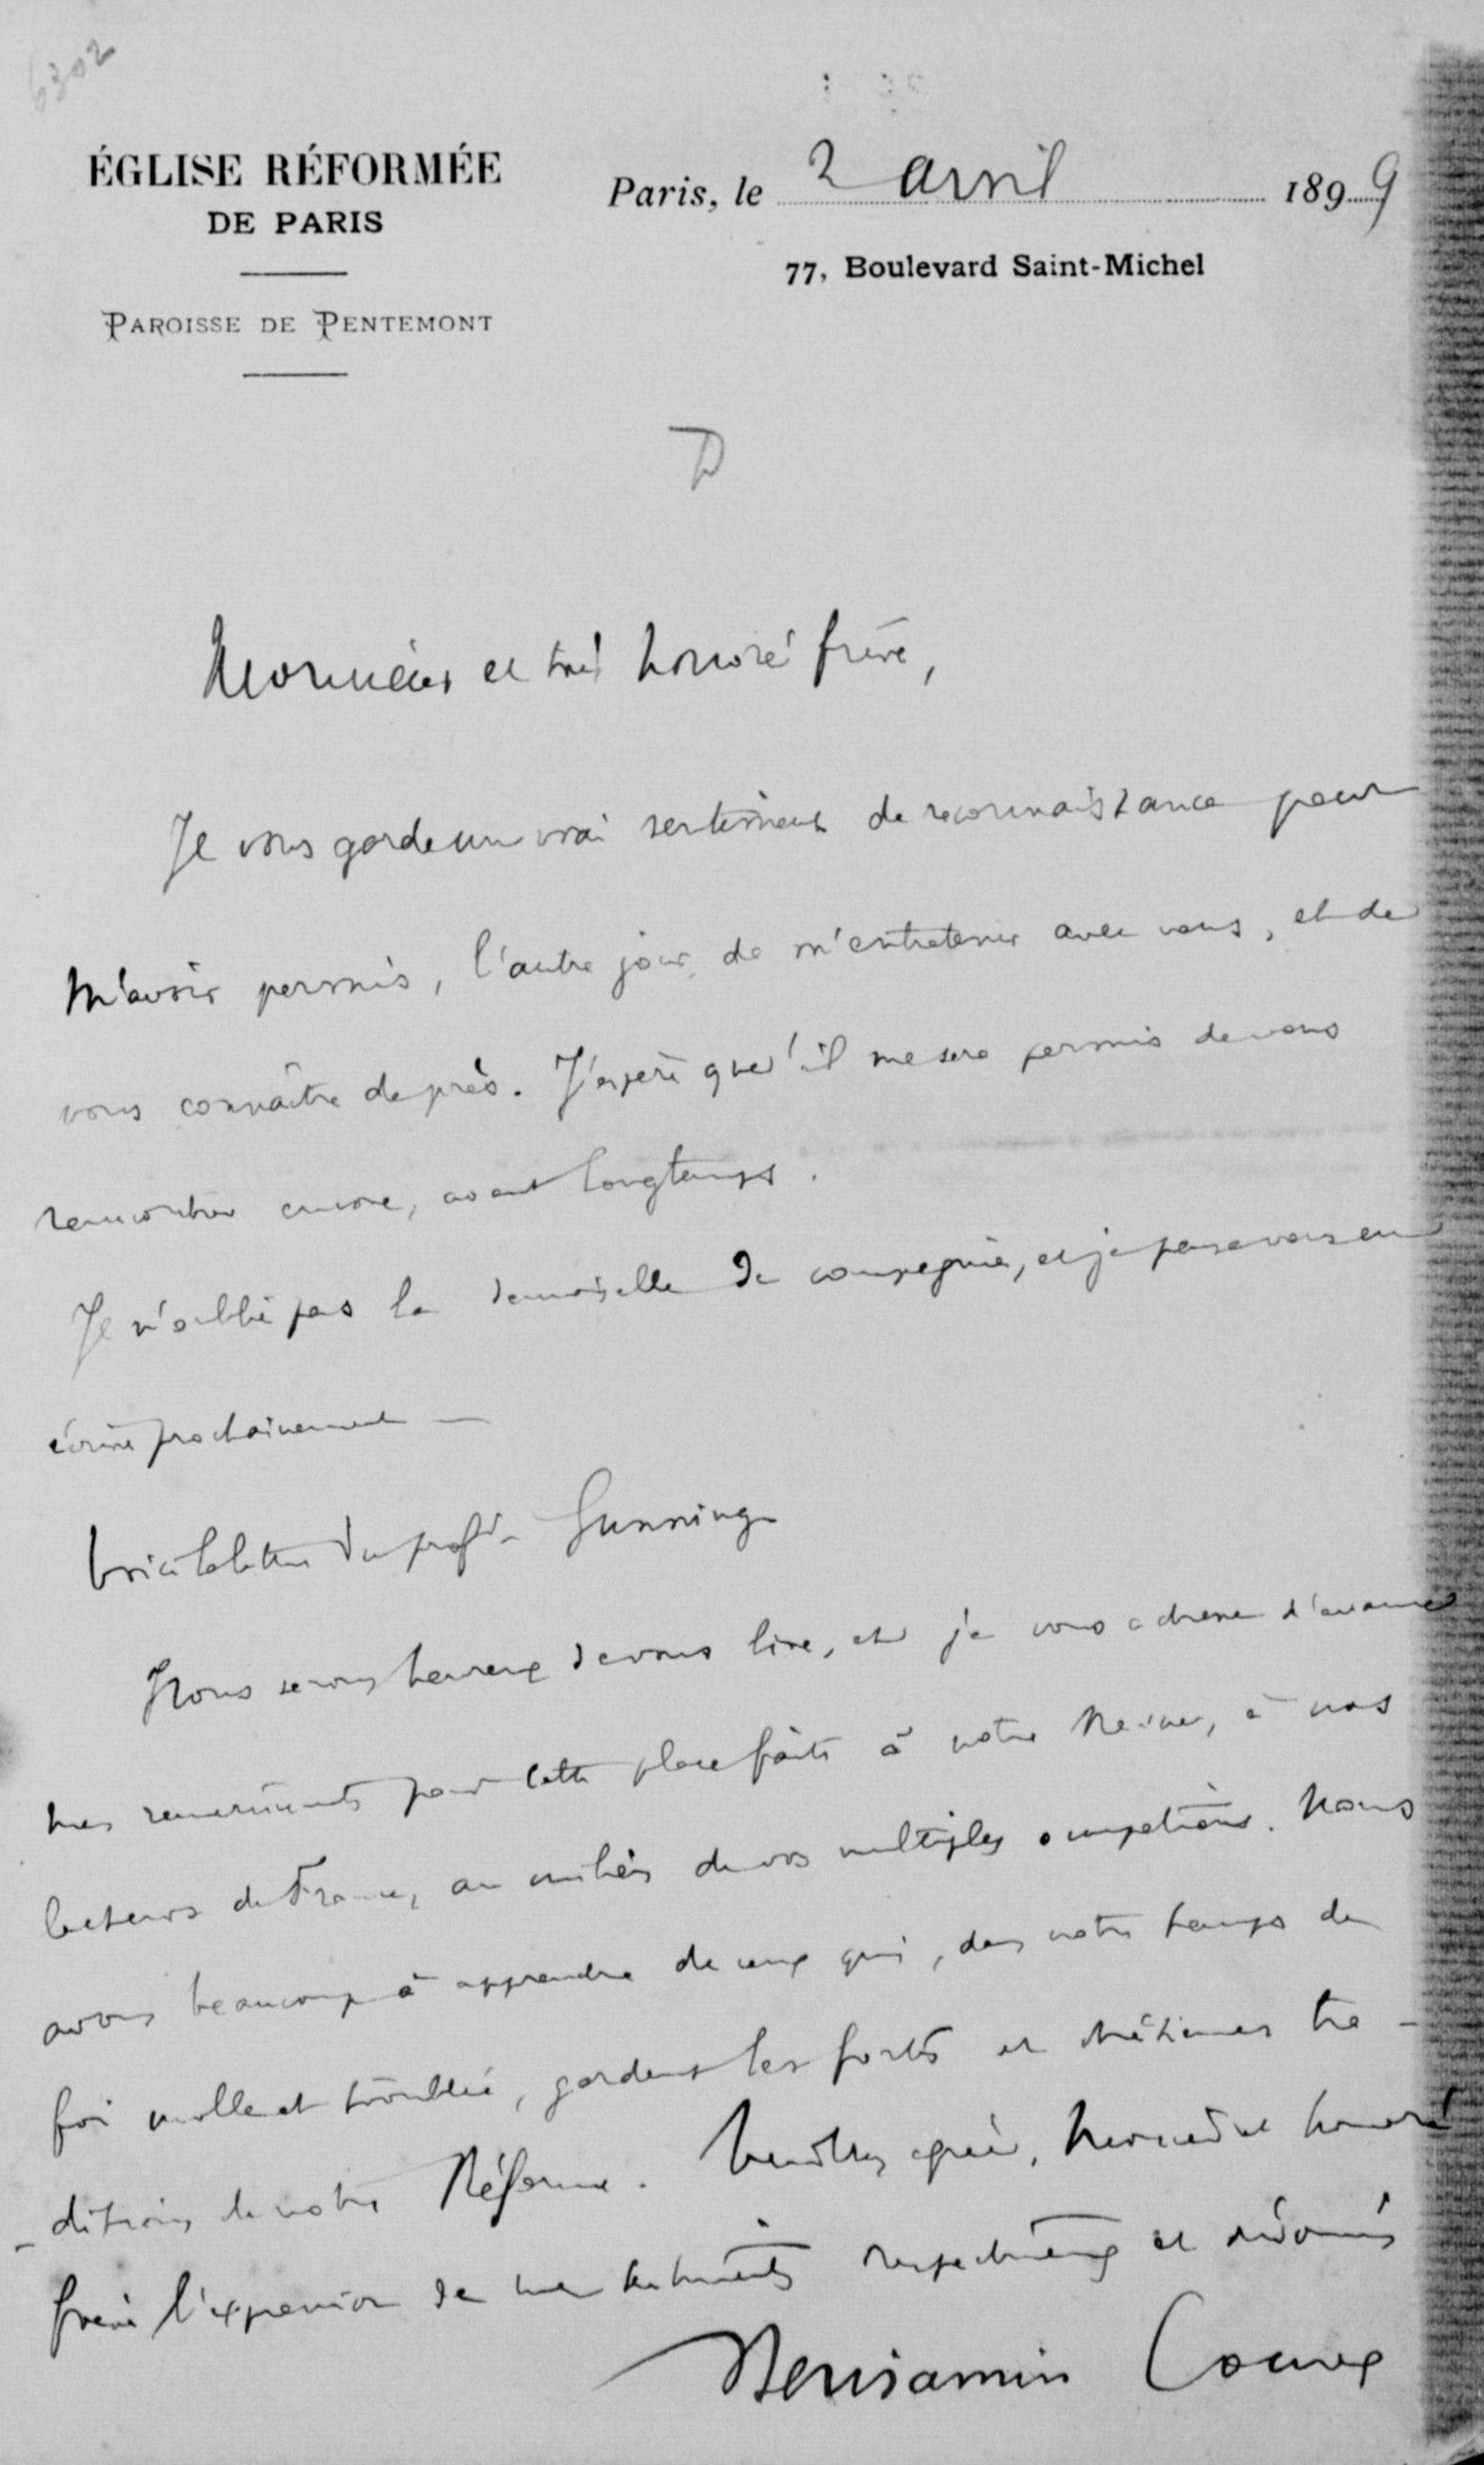 6302
ÉGLISE RÉFORMÉE
DE PARIS
PAROISSE DE PENTEMONT
Paris, le 2 avril 1899
77, Boulevard Saint-Michel
D
Monsieur et très honoré frère,
Je vous garde un vrai sentiment de reconnaissance pour
m'avoir permis, l'autre jour, de m'entretenir avec vous, et de
vous connaître de près. J'espère qu'il me sera permis de vous
rencontrer encore, avant longtemps.
Je n'oublie pas la demoiselle de compagnie, et je pense vous en
écrire prochainement —
Voici la lettre du profr Gunning
Nous serons heureux de vous lire, et je vous adresse d'avance
mes remerciements pour cette place faite à notre Revue, à nos
lecteurs de France, au milieu de vos multiples occupations. Nous
avons beaucoup à apprendre de ceux qui, dans notre temps de
foi molle et troublée, gardent les fortes et chrétiennes tra-
-ditions de notre Réforme. Veuillez agréer, Monsieur et honoré
frère l'expression de mes sentiments respectueux et dévoués
Benjamin Couve